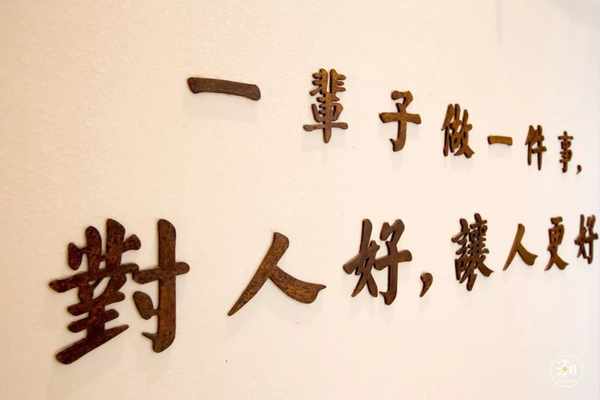 一輩子做一件事，
對人好，讓人更好